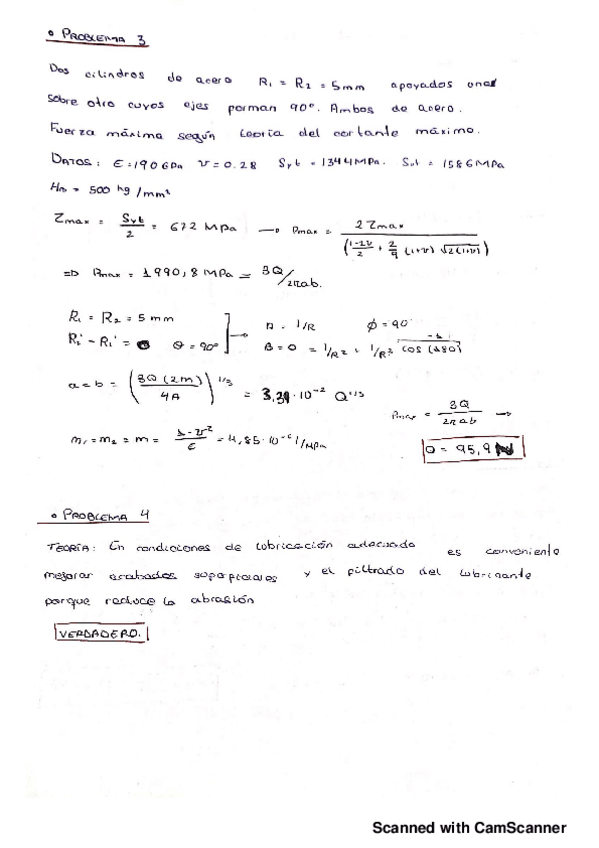 • PROBLEMA 3
Dos cilindros de acero R1 = R2 = 5mm apoyados uno
sobre otro cuyos ejes forman 90º. Ambos de acero.
Fuerza máxima según teoría del cortante máximo.
DATOS: E=190GPa ν=0.28 Syt = 1344MPa. Sut = 1586MPa
Hm = 500 kg/mm²
Zmax = Syt/2 = 672 MPa → Pmax = 2Zmax / ((1-2ν)/2 + 2/9 (1+ν) √2(1+ν))
=> Pmax = 1990,8 MPa = 3Q/2πab.
R1 = R2 = 5 mm → A = 1/R φ = 90
R2' - R1' = θ = 90º B = 0 = 1/R² + 1/R² cos(180)
a = b = (3Q(2m)/4A)^1/3 = 3,39·10⁻² Q^1/3
Pmax = 3Q/2πab →
m1 = m2 = m = (1-ν²)/E = 4,85·10⁻⁶ 1/MPa
Q = 95,9 N
• PROBLEMA 4
TEORÍA: En condiciones de lubricación adecuada es conveniente
mejorar acabados superficiales y el filtrado del lubricante
porque reduce la abrasión
VERDADERO.
Scanned with CamScanner